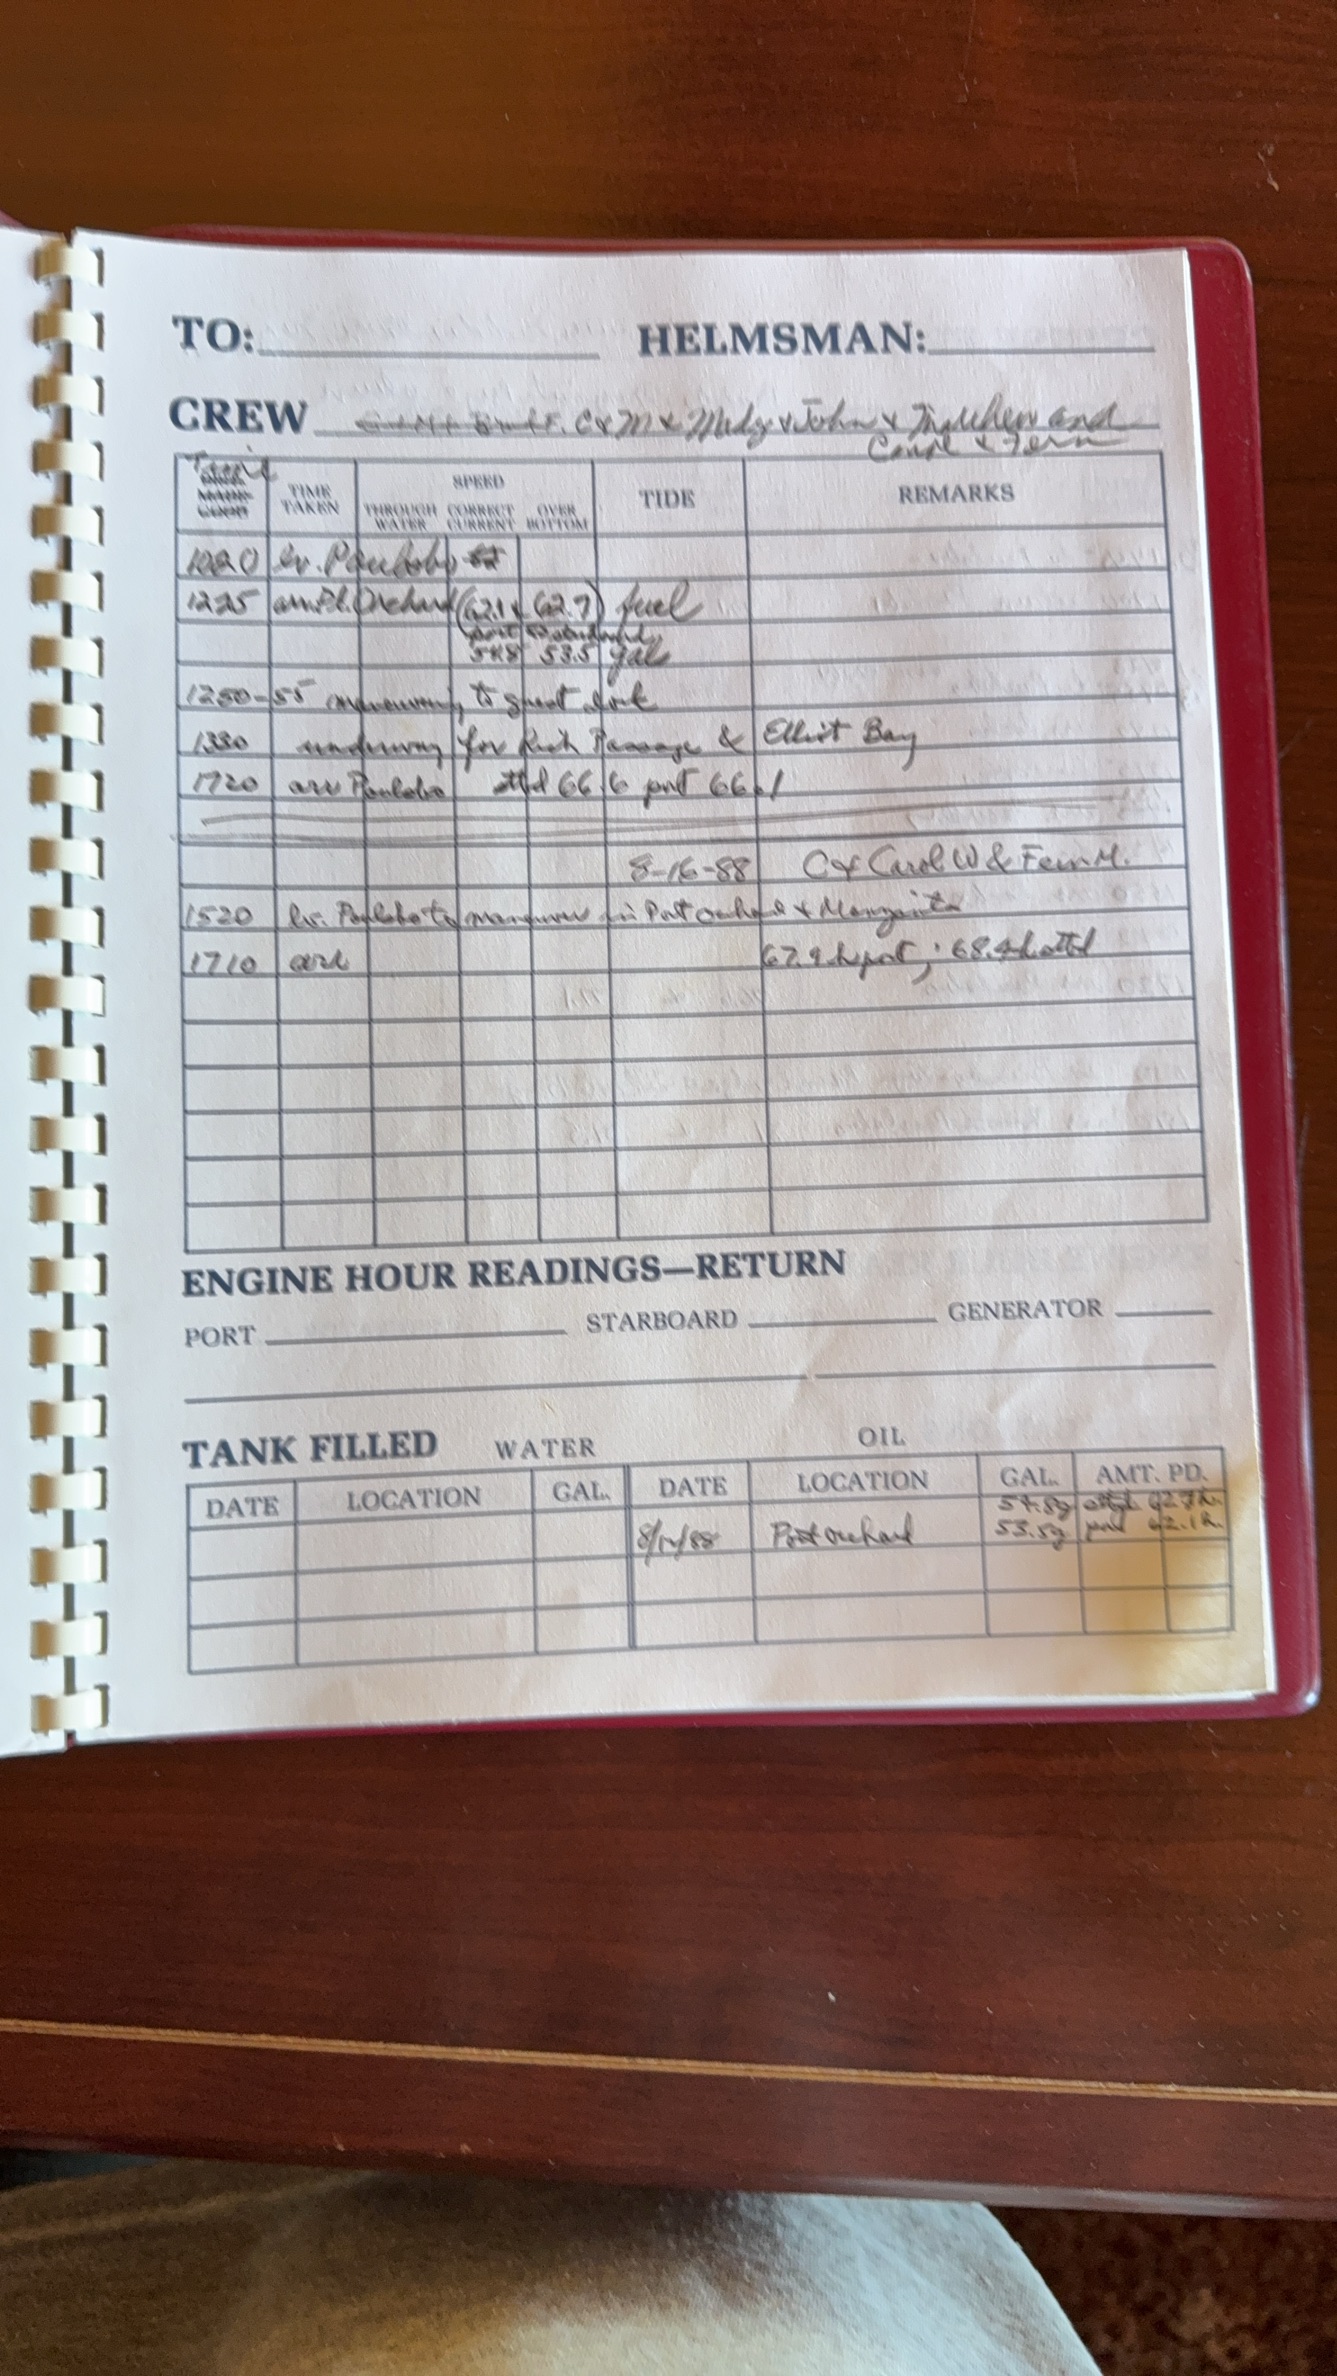 TO: HELMSMAN:
CREW C & M & Mady & John & and
Carol & Fern
Time
TIME TAKEN SPEED TIDE REMARKS
THROUGH WATER CORRECT CURRENT OVER BOTTOM
1020 lv. Poulsbo
1225 arr. Pt. Orchard (62.1 & 62.7) fuel
port starboard
54.8 53.5 gal
1250-55 maneuvering to guest dock
1330 underway for Rich Passage & Elliot Bay
1720 arr Poulsbo stbd 66.6 port 66.1
8-16-88 C & Carol W & Fern M.
1520 lv. Poulsbo to maneuver in Port orchard &
1710 arr 67.9 h port; 68.4 h stbd
ENGINE HOUR READINGS—RETURN
PORT STARBOARD GENERATOR
TANK FILLED WATER OIL
DATE LOCATION GAL. DATE LOCATION GAL. AMT. PD.
54.8g stbd 62.7 h.
8/ /88 Port orchard 53.5g port 62.1 h.